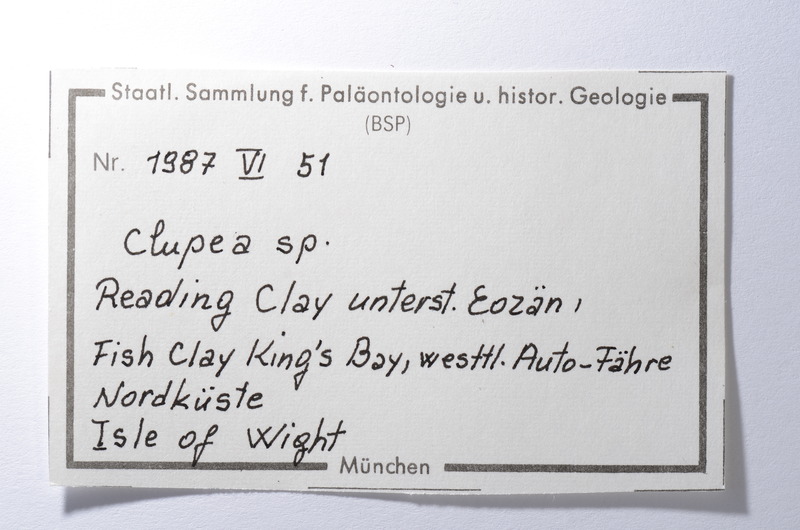 Staatl. Sammlung f. Paläontologie u. histor. Geologie
(BSP)
Nr. 1987 VI 51
Clupea sp.
Reading Clay unterst. Eozän,
Fish Clay King's Bay, westtl. Auto-Fähre
Nordküste
Isle of Wight
München